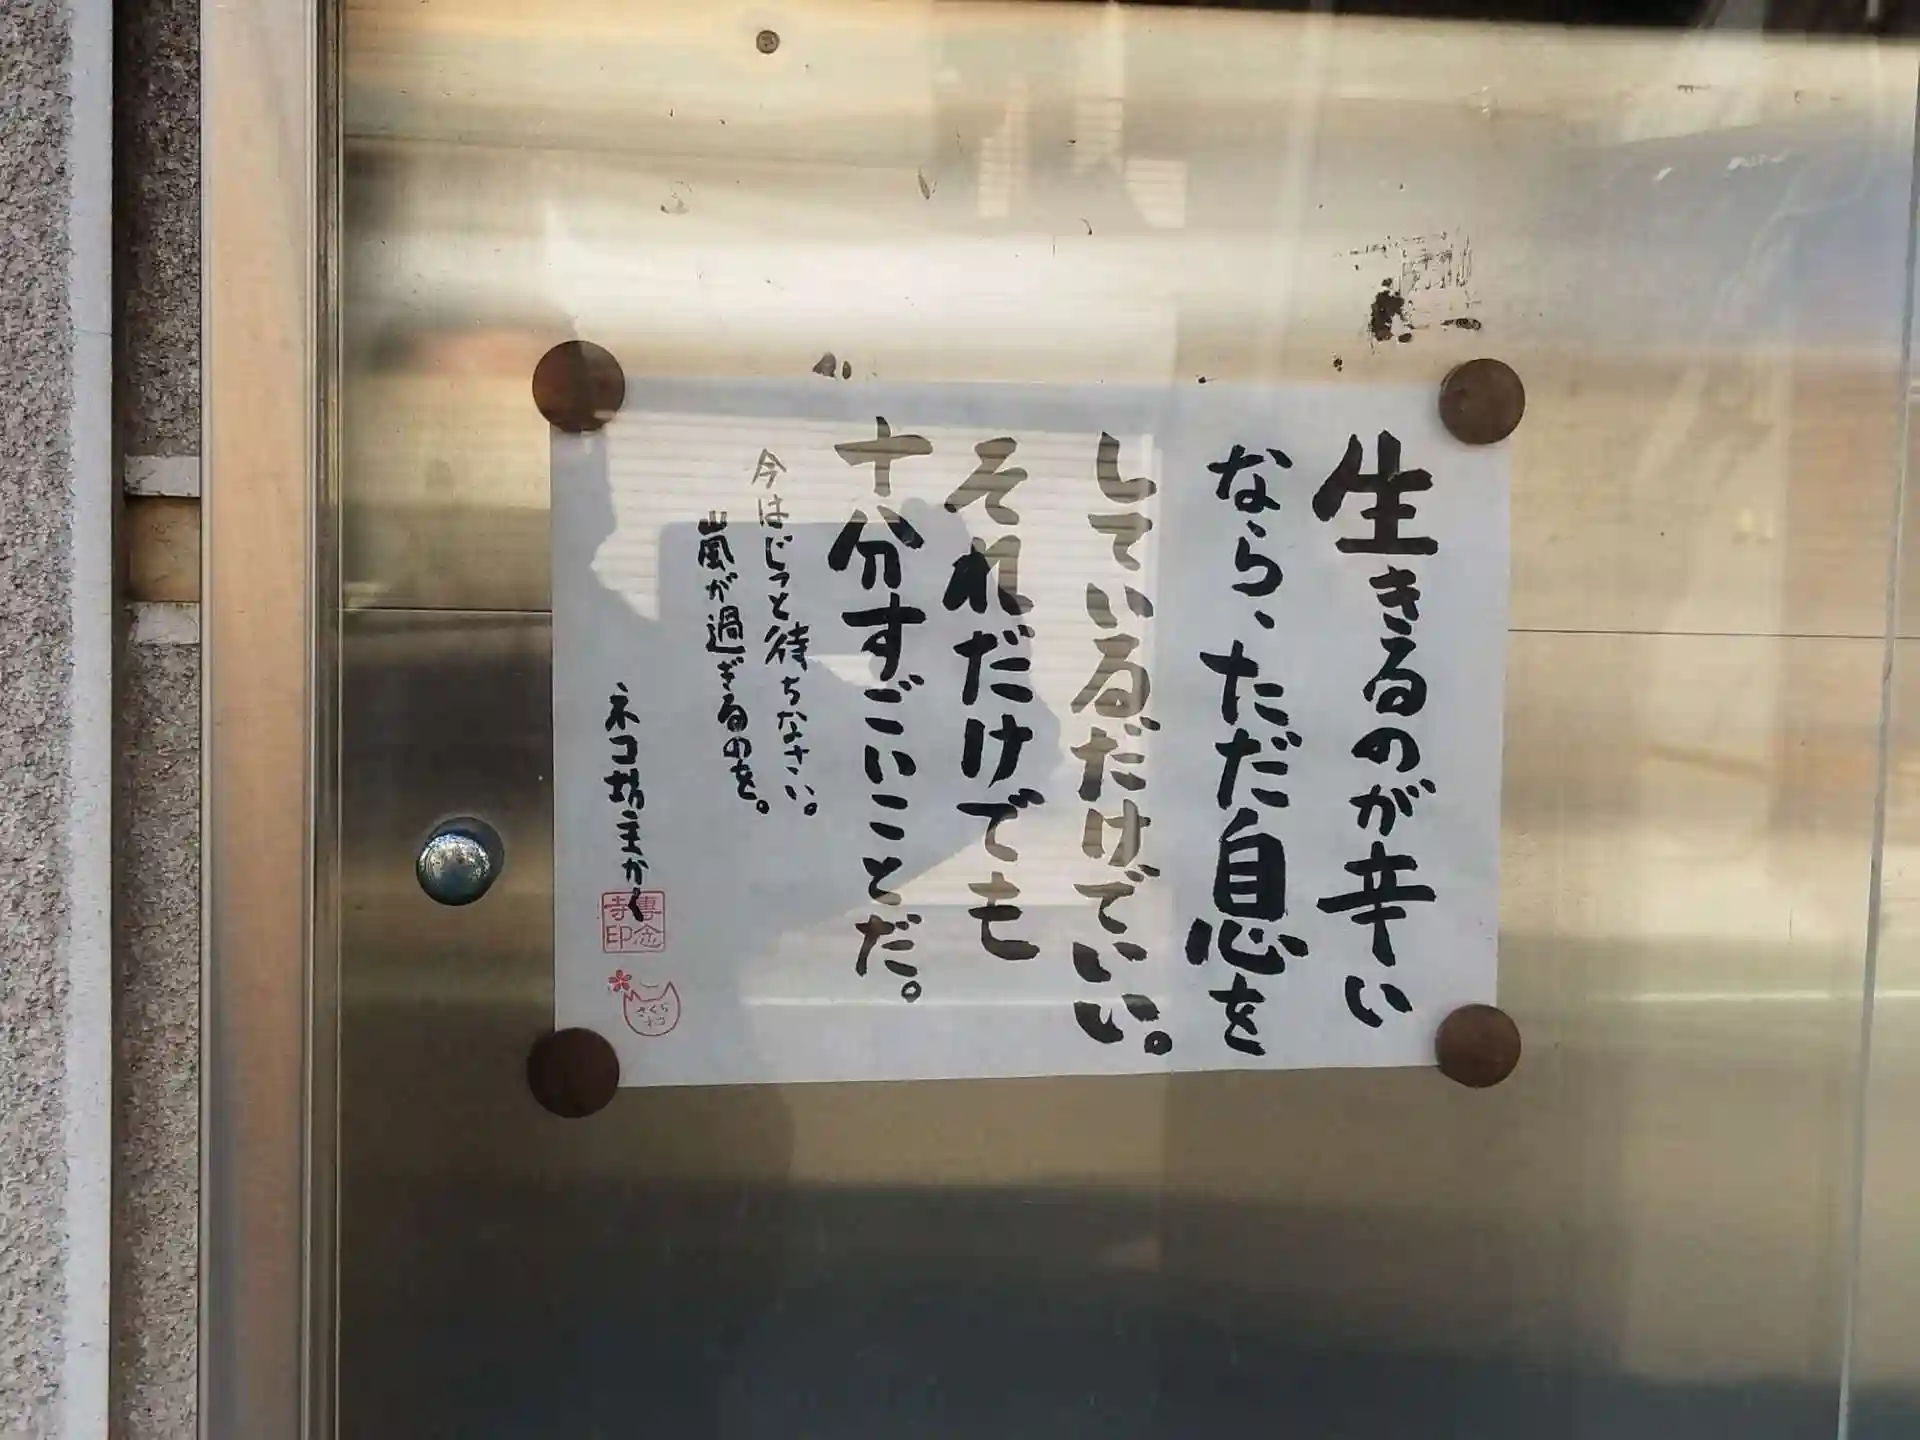 生きるのが辛い
なら、ただ息を
しているだけでいい。
それだけでも
十分すごいことだ。
今はじっと待ちなさい。
嵐が過ぎるのを。
ネコ坊主かく
專念
寺印
さくら
ネコ